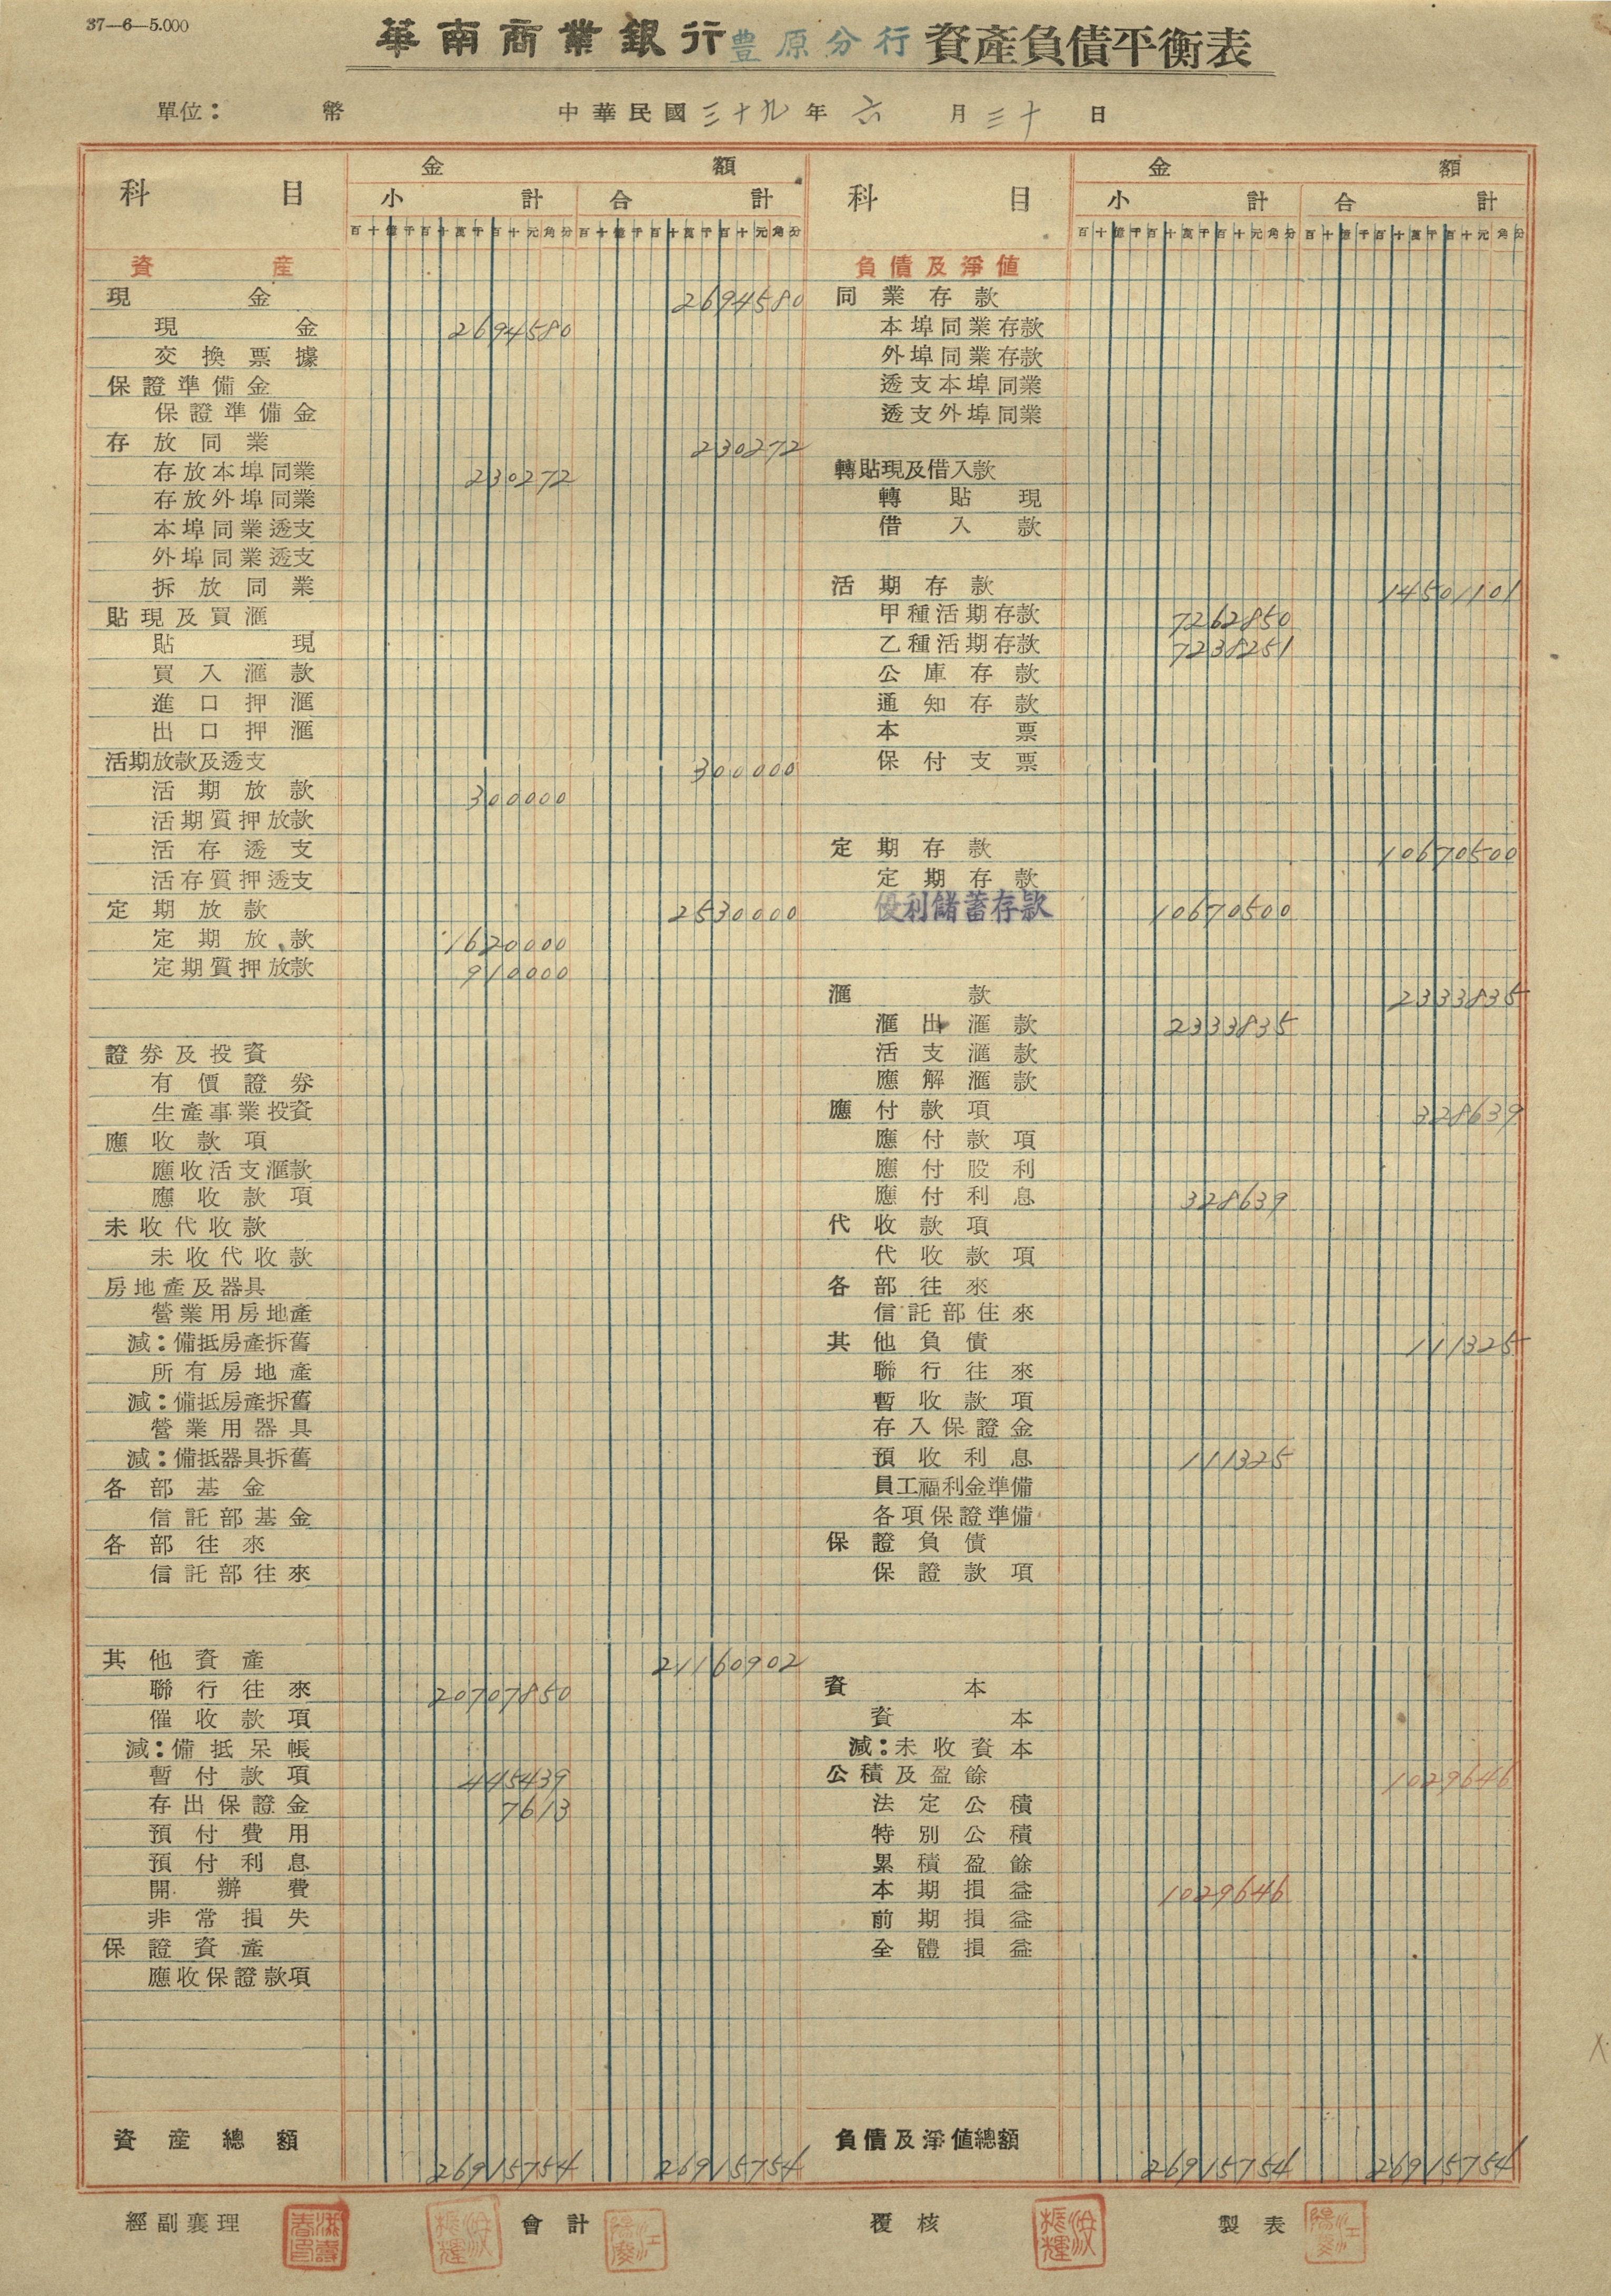 37—6—5.000
華南商業銀行豊原分行資產負債平衡表
單位： 幣 中華民國三十九年六月三十日
科目 金額 科目 金額
小計 合計 小計 合計
百十億千百十萬千百十元角分 百十億千百十萬千百十元角分 百十億千百十萬千百十元角分 百十億千百十萬千百十元角分
資產
現金 2694580
現金 2694580
交換票據
保證準備金
保證準備金
存放同業 230272
存放本埠同業 230272
存放外埠同業
本埠同業透支
外埠同業透支
拆放同業
貼現及買滙
貼現
買入滙款
進口押滙
出口押滙
活期放款及透支 300000
活期放款 300000
活期質押放款
活存透支
活存質押透支
定期放款 2530000
定期放款 1620000
定期質押放款 910000
證券及投資
有價證券
生產事業投資
應收款項
應收活支滙款
應收款項
未收代收款
未收代收款
房地產及器具
營業用房地產
減：備抵房產拆舊
所有房地產
減：備抵房產拆舊
營業用器具
減：備抵器具拆舊
各部基金
信託部基金
各部往來
信託部往來
其他資產 21160902
聯行往來 20707850
催收款項
減：備抵呆帳
暫付款項 445439
存出保證金 7613
預付費用
預付利息
開辦費
非常損失
保證資產
應收保證款項
資產總額 26915754 26915754
負債及淨值
同業存款
本埠同業存款
外埠同業存款
透支本埠同業
透支外埠同業
轉貼現及借入款
轉貼現
借入款
活期存款 14501101
甲種活期存款 7262850
乙種活期存款 7238251
公庫存款
通知存款
本票
保付支票
定期存款 10670500
定期存款
優利儲蓄存款 10670500
滙款 2333835
滙出滙款 2333835
活支滙款
應解滙款
應付款項 328639
應付款項
應付股利
應付利息 328639
代收款項
代收款項
各部往來
信託部往來
其他負債 111325
聯行往來
暫收款項
存入保證金
預收利息 111325
員工福利金準備
各項保證準備
保證負債
保證款項
資本
資本
減：未收資本
公積及盈餘 1029646
法定公積
特別公積
累積盈餘
本期損益 1029646
前期損益
全體損益
負債及淨值總額 26915754 26915754
經副襄理 會計 覆核 製表